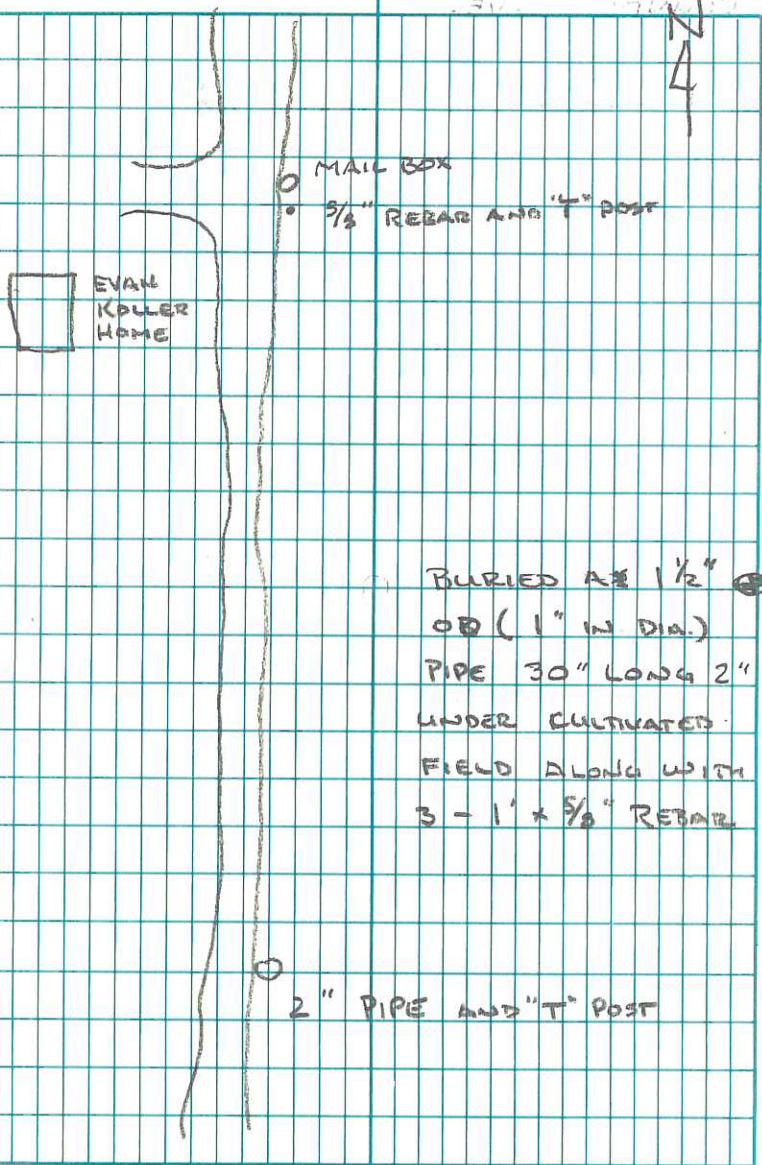 N
MAIL BOX
5/8" REBAR AND "T" POST
EVAN
KOLLER
HOME
BURIED A 1 1/2"
OD ( 1" IN DIA.)
PIPE 30" LONG 2"
UNDER CULTIVATED
FIELD ALONG WITH
3 - 1' x 5/8" REBAR
2" PIPE AND "T" POST